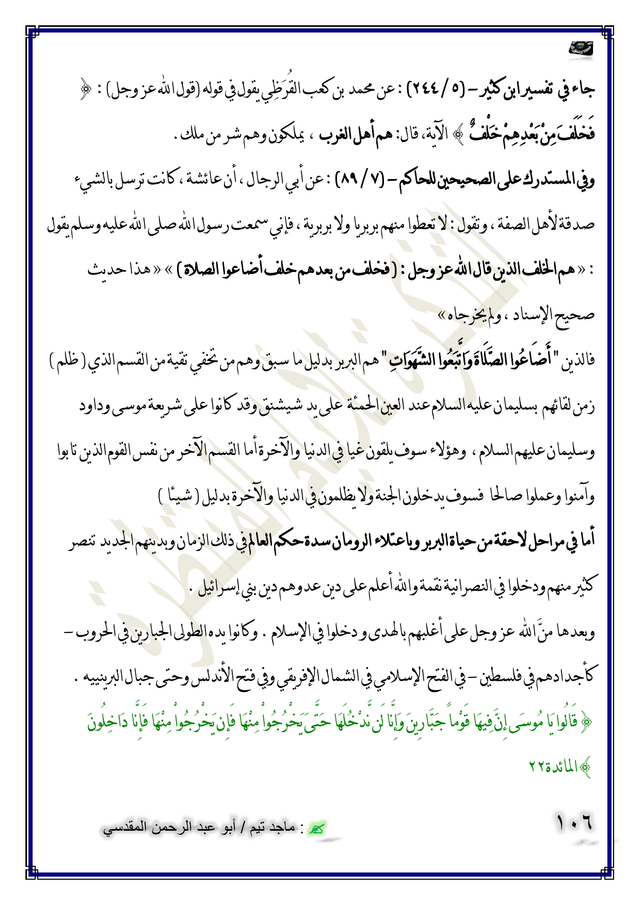 جاء في تفسير ابن كثير – (٥ / ٢٤٤) : عن محمد بن كعب القُرَظِي يقول في قوله (قول الله عز وجل) : ﴿
فَخَلَفَ مِنْ بَعْدِهِمْ خَلْفٌ ﴾ الآية، قال: هم أهل الغرب ، يملكون وهم شر من ملك .
وفي المستدرك على الصحيحين للحاكم – (٧ / ٨٩) : عن أبي الرجال ، أن عائشة ، كانت ترسل بالشيء
صدقة لأهل الصفة ، وتقول : لا تعطوا منهم بربريا ولا بربرية ، فإني سمعت رسول الله صلى الله عليه وسلم يقول
: « هم الخلف الذين قال الله عز وجل : ( فخلف من بعدهم خلف أضاعوا الصلاة ) » « هذا حديث
صحيح الإسناد ، ولم يخرجاه »
فالذين " أَضَاعُوا الصَّلَاةَ وَاتَّبَعُوا الشَّهَوَاتِ " هم البربر بدليل ما سبق وهم من تخفي تقية من القسم الذي ( ظلم )
زمن لقائهم بسليمان عليه السلام عند العين الحمئة على يد شيشنق وقد كانوا على شريعة موسى وداود
وسليمان عليهم السلام ، وهؤلاء سوف يلقون غيا في الدنيا والآخرة أما القسم الآخر من نفس القوم الذين تابوا
وآمنوا وعملوا صالحا فسوف يدخلون الجنة ولا يظلمون في الدنيا والآخرة بدليل ( شيئا )
أما في مراحل لاحقة من حياة البربر وباعتلاء الرومان سدة حكم العالم في ذلك الزمان وبدينهم الجديد تنصر
كثير منهم ودخلوا في النصرانية نقمة والله أعلم على دين عدوهم دين بني إسرائيل .
وبعدها منَّ الله عز وجل على أغلبهم بالهدى و دخلوا في الإسلام . وكانوا يده الطولى الجبارين في الحروب –
كأجدادهم في فلسطين – في الفتح الإسلامي في الشمال الإفريقي وفي فتح الأندلس وحتى جبال البرينييه .
﴿ قَالُوا يَا مُوسَى إِنَّ فِيهَا قَوْماً جَبَّارِينَ وَإِنَّا لَن نَّدْخُلَهَا حَتَّىَ يَخْرُجُواْ مِنْهَا فَإِن يَخْرُجُواْ مِنْهَا فَإِنَّا دَاخِلُونَ
﴾ المائدة٢٢
١٠٦
: ماجد تيم / أبو عبد الرحمن المقدسي